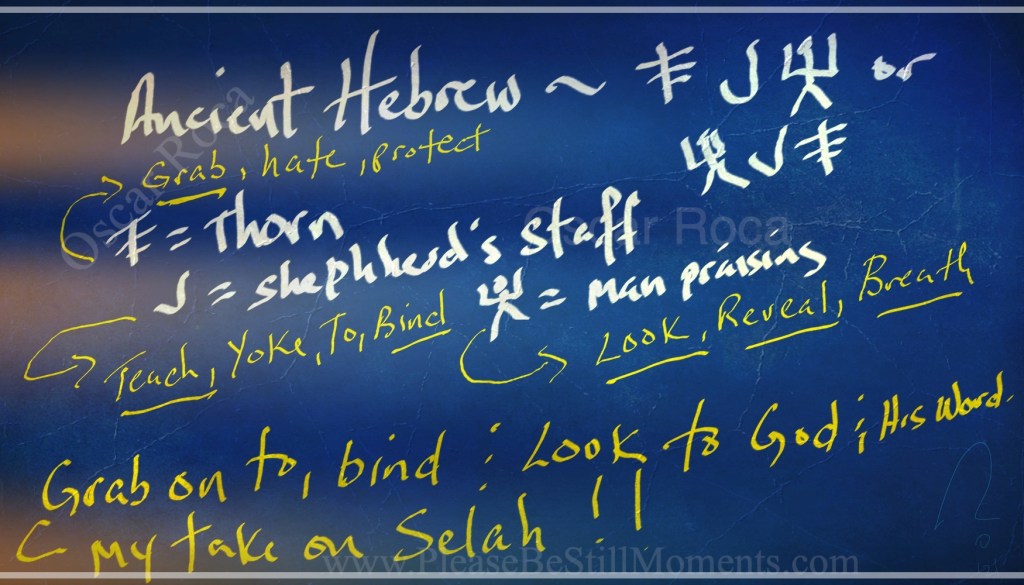 Ancient Hebrew ~ or
Grab, hate, protect
= Thorn
= shephherd's staff
= Man praising
Teach, Yoke, To, Bind
Look, Reveal, Breath
Grab on to, bind ; Look to God ; His Word.
my take on Selah !!
Oscar Roca
Oscar Roca
www.PleaseBeStillMoments.com